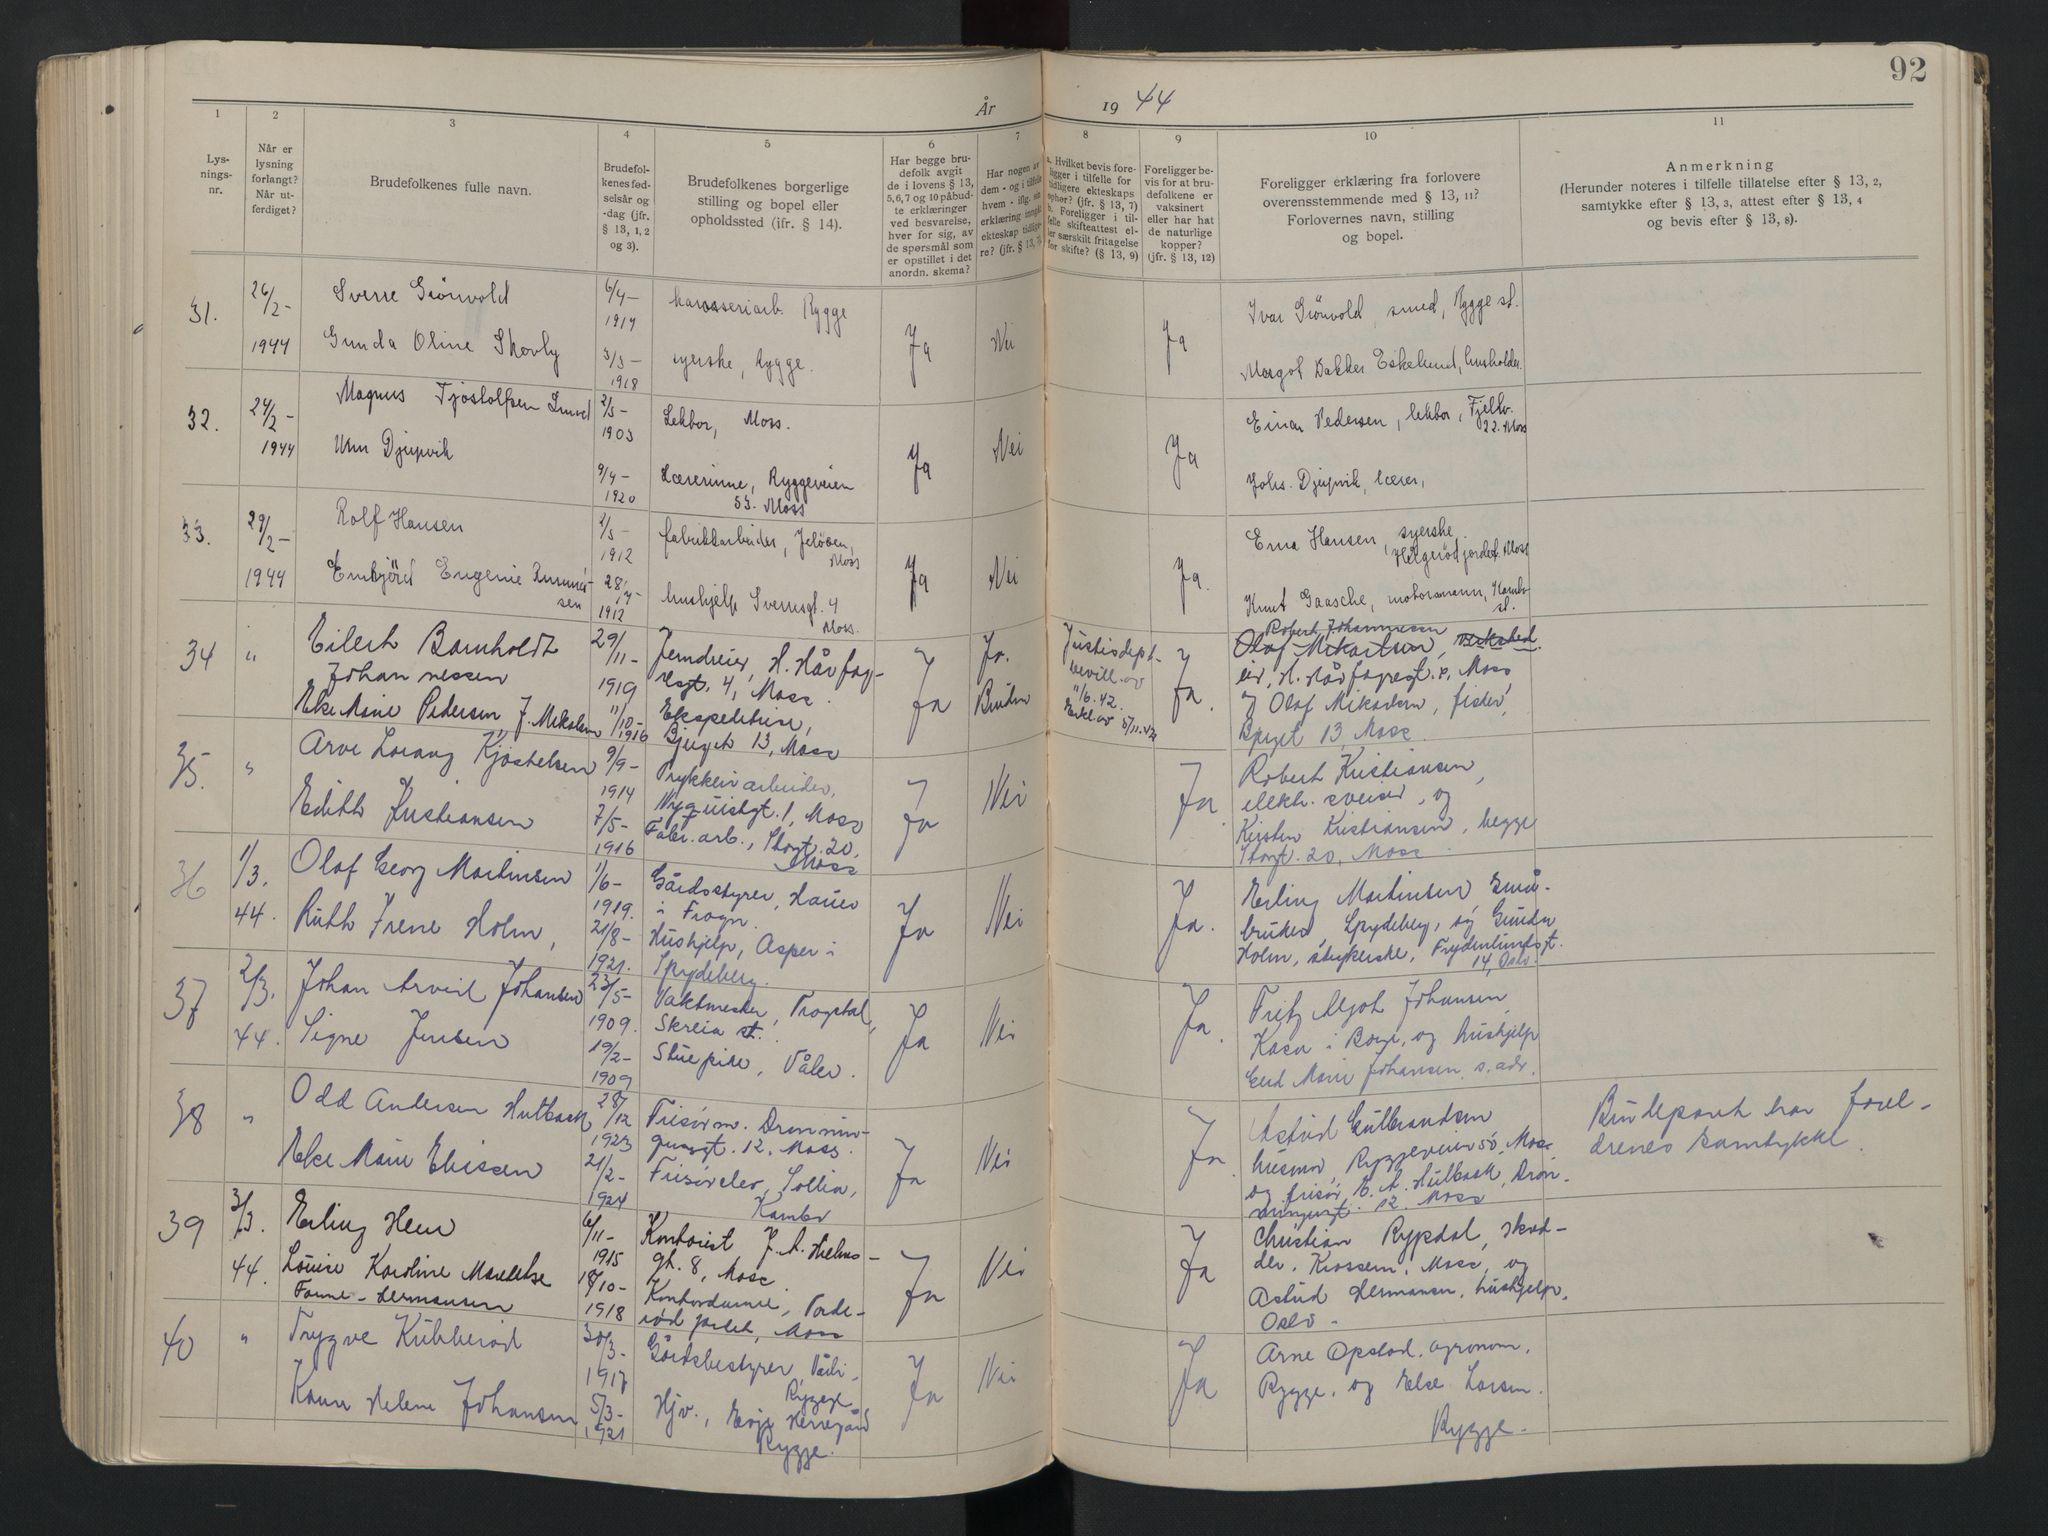 92
År 19 44
1
2
3
4
5
6
7
8
9
10
11
Lys-
nings-
nr.
Når er
lysning
forlangt?
Når ut-
ferdiget?
Brudefolkenes fulle navn.
Brudefol-
kenes fød-
selsår og
-dag (jfr.
§ 13, 1, 2
og 3).
Brudefolkenes borgerlige
stilling og bopel eller
opholdssted (ifr. § 14).
Har begge bru-
defolk avgit
de i lovens § 13,
5, 6, 7 og 10 påbud-
te erklæringer
ved besvarelse,
hver for sig, av
de spørsmål som
er opstillet i det
anordn. skema?
Har nogen av
dem - og i tilfelle
hvem - iflg. sin
erklæring inngått
ekteskap tidlige-
re? (jfr. § 13, 7).
a. Hvilket bevis fore-
ligger i tilfelle for
tidligere ekteskaps
ophør? (jfr. § 13, 7)
b. Foreligger i til-
felle skifteattest el-
ler særskilt fritagelse
for skifte? (§ 13, 9)
Foreligger be-
vis for at bru-
defolkene er
vaksinert
eller har hat
de naturlige
kopper?
(jfr. § 13, 12)
Foreligger erklæring fra forlovere
overensstemmende med § 13, 11?
Forlovernes navn, stilling
og bopel.
Anmerkning
(Herunder noteres i tilfelle tillatelse efter § 13, 2,
samtykke efter § 13, 3, attest efter § 13, 4
og bevis efter § 13, 8).
31.
26/2-
1944
Sverre Grönvold
Gunda Oline Skovly
6/4-
1914
3/3-
1918
karosseriarb. Rygge
syerske, Rygge.
Ja
Nei
Ja
Ivar Grönvold, smed, Rygge st.
Margot Bakker Eskelund, husholder.
32.
24/2-
1944
Magnus Tjostolfsen
Unn Djupvik
2/5-
1903
9/4-
1920
Lektor, Moss.
Lærerinne, Ryggeveien
53. Moss
Ja
Nei
Ja
Einar Pedersen, lektor, Fjellv.
22. Moss
Johs. Djupvik, lærer,
33.
29/2-
1944
Rolf Hansen
Embjörd Eugenie
sen
2/5-
1912
28/4-
1912
fabrikkarbeider, Jelöen,
Moss
hushjelp Sverresgt. 4
Moss.
Ja
Nei
Ja.
Erna Hansen, syerske
Helgerödjordet. Moss
Knut Gaasche, motormann, Kambo
st.
34
"
Eilert Bernholdt
Johannessen
Else Marie Pedersen, f. Mikalsen
29/11-
1919
11/10-
1916
Jerndreier, H. Hårfag-
resgt. 4, Moss.
Ekspeditrise,
Bjerget 13, Moss
Ja
Ja.
Bruden
Justisdept.
bevill. av
11/6.42.
Erkl. av 5/11.42
Ja.
Robert Johannessen
Olaf Mikalsen, verksted
eier, H. Hårfagresgt. 4, Moss
og Olaf Mikalsen, fisker,
Bjerget 13, Moss.
35.
"
Arve Lorang Kjøstelsen
Edith Kristiansen
9/9-
1914
7/5-
1916
Trykkeriarbeider,
Nyquistgt. 1, Moss
Fabr. arb., Storgt. 20,
Moss
Ja
Nei
Ja.
Robert Kristiansen,
elektr. sveiser, og
Kirsten Kristiansen, begge
Storgt. 20, Moss.
36
1/3.
44.
Olaf Georg Martinsen
Ruth Irene Holm,
1/6-
1919.
21/8-
1921.
Gårdsstyrer, Hauer
i Frogn.
Hushjelp, Asper i
Spydeberg.
Ja
Nei
Ja.
Erling Martinsen, små-
bruker, Spydeberg, og Gunda
Holm, strykerske, Frydenlundsgt.
14, Oslo.
37
2/3.
44.
Johan Arvid Johansen
Signe Jensen
23/5-
1909.
19/2-
1909
Vaktmester, Trogstal,
Skreia st.
Stuepike, Våler.
Ja
Nei
Ja.
Fritz Algot Johansen,
Kasa i Borge, og hushjelp
Gerd Marie Johansen, s. adr.
38
"
Odd Andersen Hulback
Else Marie Eliesen
28/12
1923
21/2-
1924
Frisørm. Dronnin-
gensgt. 12, Moss.
Frisørelev, Sollia,
Kambo
Ja
Nei
Ja.
Astrid Gulbrandsen
husmor, Ryggeveien 50, Moss
og frisør E. A. Hulback, Dron-
ningensgt. 12. Moss
Brudeparet har forel-
drenes samtykke.
39
3/3.
44.
Erling Hem
Louise Karoline Mandelse
Fonne-Hermansen
6/11-
1915
18/10-
1918
Kontorist J. A. Hielms-
gt. 8, Moss
Kontordame, Torde-
rød jordet, Moss
Ja
Nei
Ja
Christian Rypdal, skred-
der, Krossern, Moss, og
Astrid Hermansen, hushjelp,
Oslo -
40
"
Trygve Kubberød
Karin Helene Johansen
30/3-
1917
5/3-
1921
Gårdsbestyrer, Vårli,
Rygge
Hjv., Evje Herregård
Rygge.
Ja
Nei
Ja
Arne Opstad, agronom,
Rygge, og Else Larsen.
Rygge.